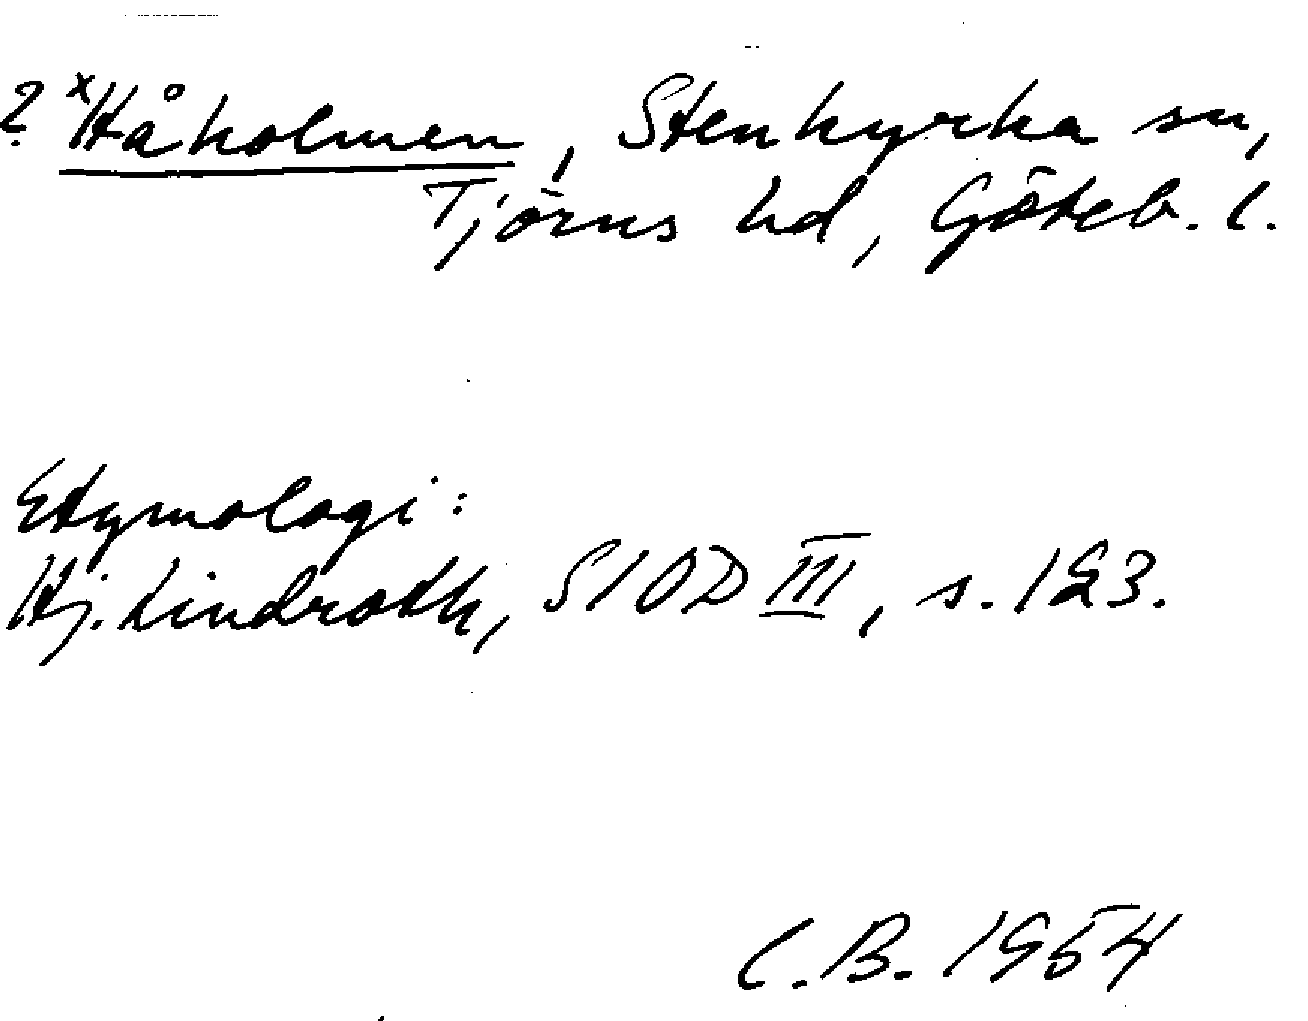 ? ˣHåholmen, Stenkyrka sn,
Tjörns hd, Göteb. l.
Etymologi:
Hj. Lindroth, SIOD III, s. 123.
C.B. 1954